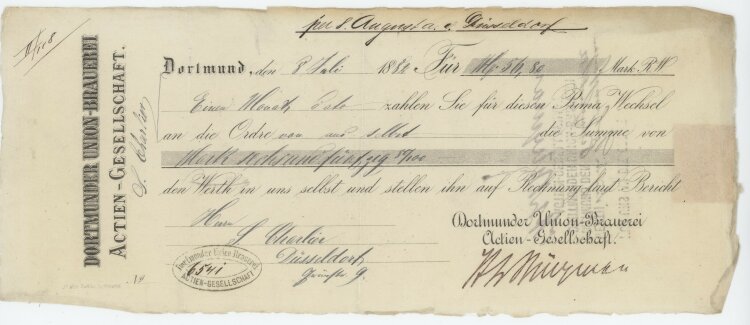 per 8. August a. c. Düsseldorf
DORTMUNDER UNION-BRAUEREI
ACTIEN-GESELLSCHAFT.
Dortmund, den 8 Juli 1882 Für Mark R.W.
Einen Monat dato zahlen Sie für diesen Prima-Wechsel
an die Ordre von uns selbst die Summe von
Mark sechsundfünfzig 80/100
den Werth in uns selbst und stellen ihn auf Rechnung laut Bericht
Herrn
S. Charlier
Düsseldorf
9.
Dortmunder Union-Brauerei
Actien-Gesellschaft.
Dortmunder Union Brauerei
6541
ACTIEN-GESELLSCHAFT